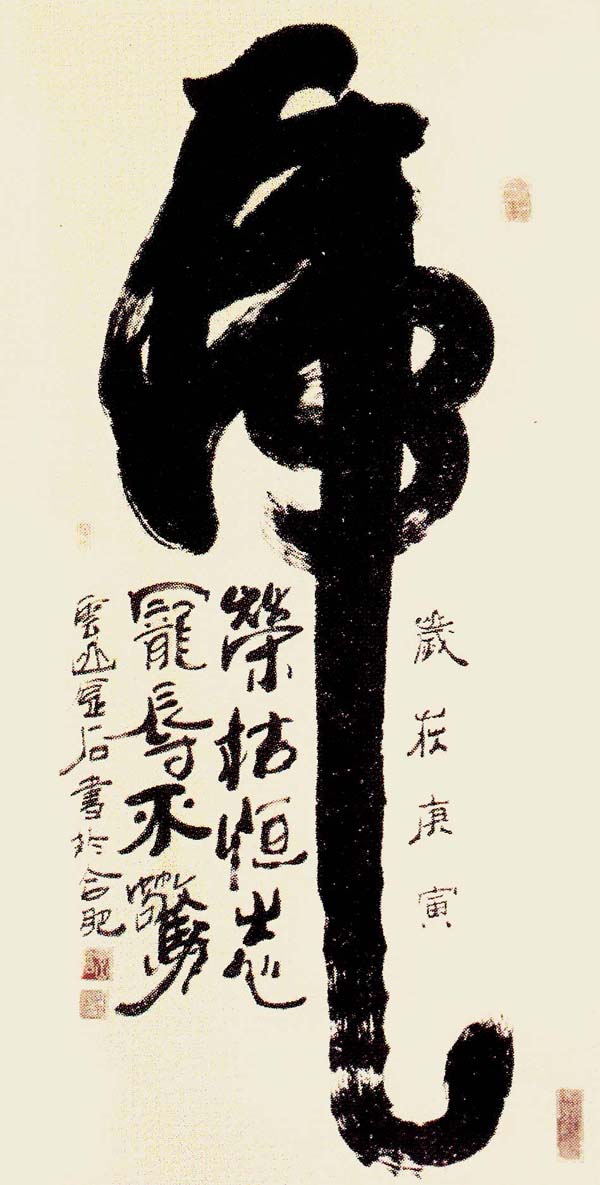 虎
歲在庚寅
榮枯恒志
寵辱不驚
雲山石書於合肥